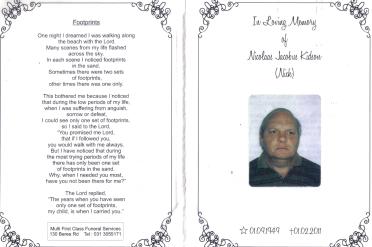 Footprints
One night I dreamed I was walking along
the beach with the Lord.
Many scenes from my life flashed
across the sky.
In each scene I noticed footprints
in the sand.
Sometimes there were two sets
of footprints,
other times there was one only.
This bothered me because I noticed
that during the low periods of my life,
when I was suffering from anguish,
sorrow or defeat,
I could see only one set of footprints,
so I said to the Lord,
"You promised me Lord,
that if I followed you,
you would walk with me always.
But I have noticed that during
the most trying periods of my life
there has only been one
set of footprints in the sand.
Why, when I needed you most,
have you not been there for me?"
The Lord replied,
"The years when you have seen
only one set of footprints,
my child, is when I carried you."
Multi First Class Funeral Services
130 Berea Rd Tel : 031 3055171
In Loving Memory
of
Nicolaas Jacobus Kidson
(Nick)
☆ 01.09.1949 †01.02.2011